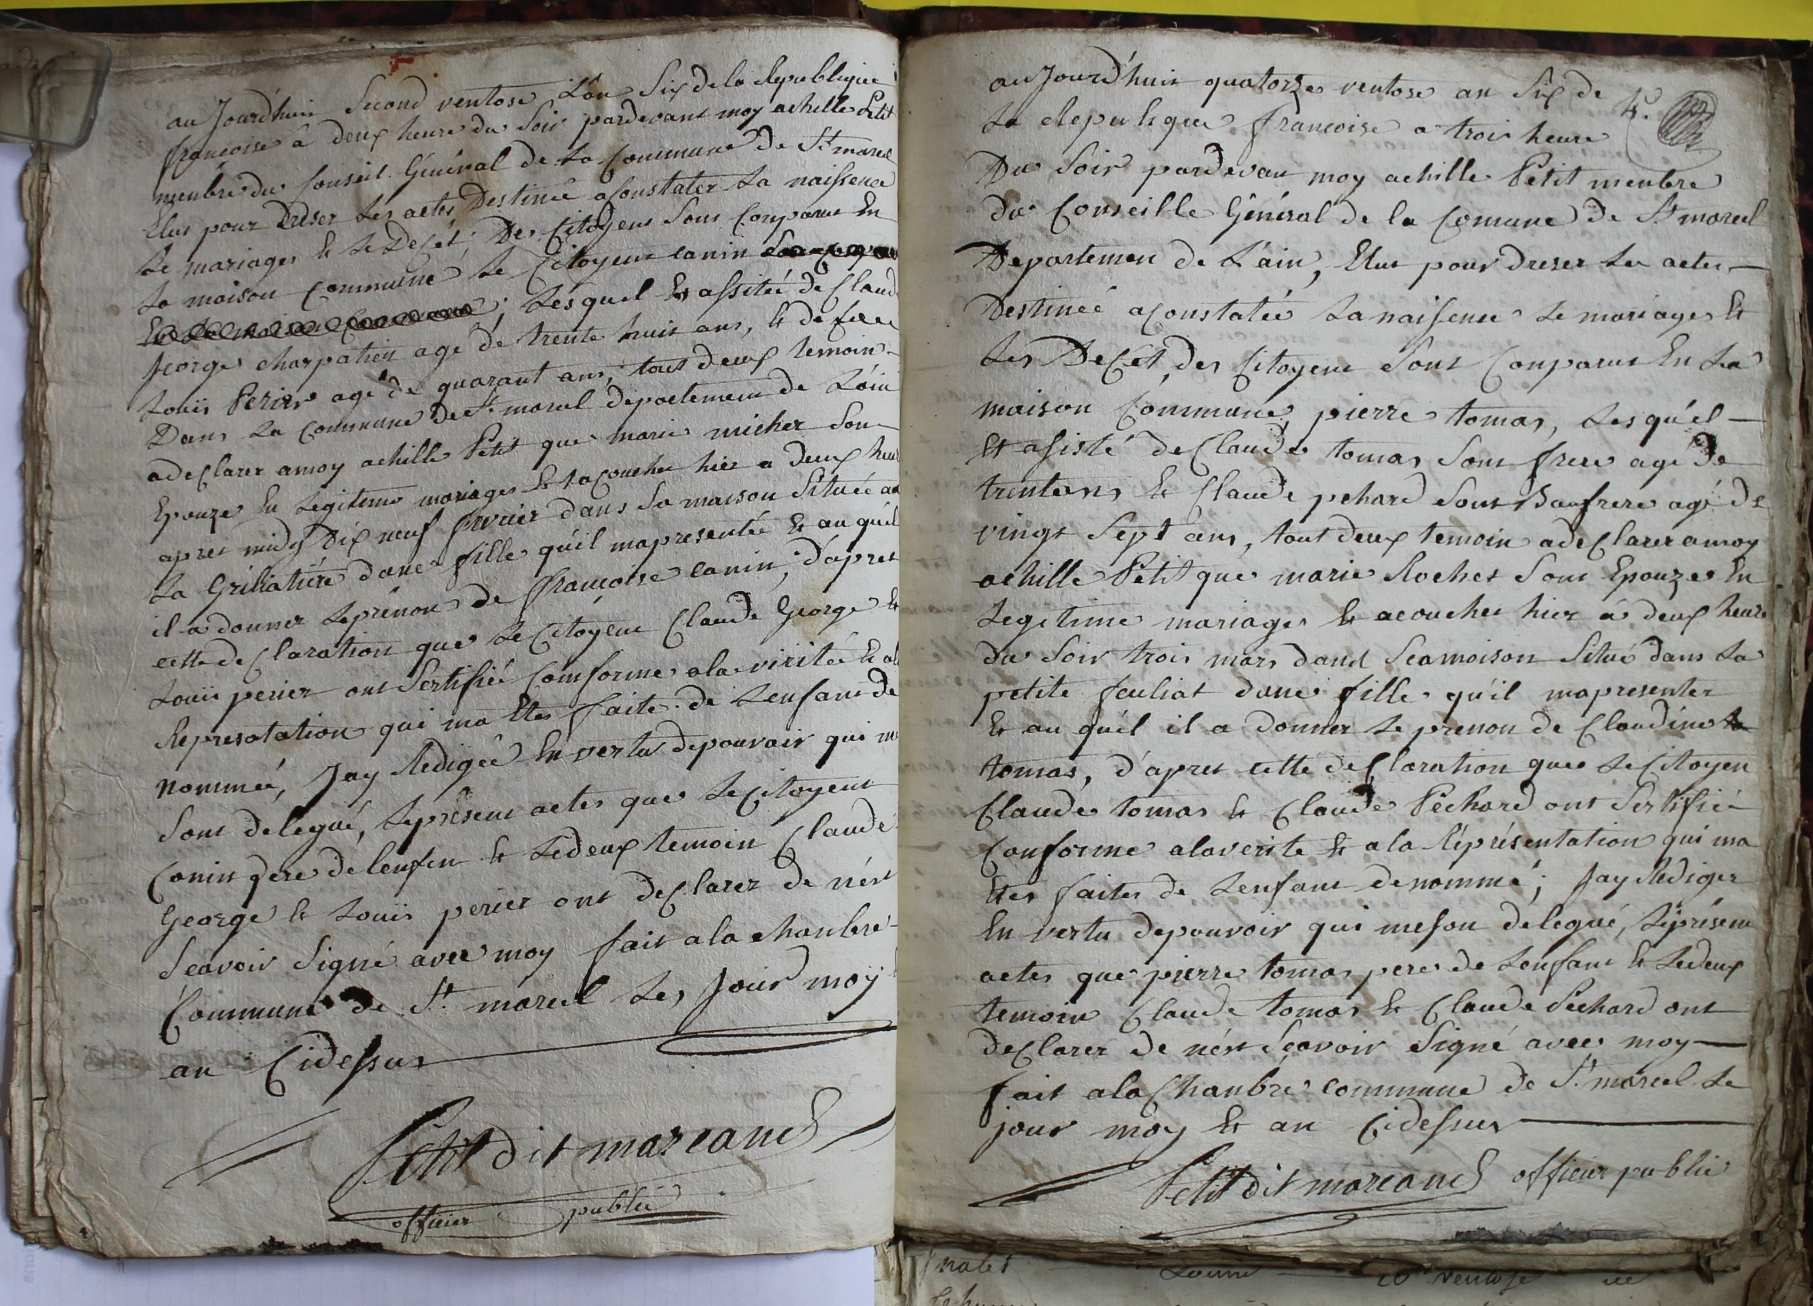 au Jourd'huis Second ventose L'an Six de la Republique
francoise â deux heure du Soir pardevant moy achille Petit
menbre du Conseil Général de La Commune de St marcel
Elus pour Dréser Les actes Destineé aConstater La naissence
Le mariages Et Le Decét; Des Citoyens Sont Conparus En
La maison Commune Le Citoyent canin
Lesquel Et assitée de Claude
George charpatien age de trente huit ans, Et de
Louis Perier agé de quarant ans, tout deux temoin
Dans La Commune De St marcel departement de L'ain
adeClarer amoy achille Petit que marie micher Son
Epouze En Legitime mariages Et acoucher hier a deux heur
apret midy Dix neuf fevrier dans Sa maison Situeé au
La Grillatiére d'une fille qu'il mapresenteé Et au quél
il a donner Leprénon de francoise canin, d'apret
cette deClaration que Le Citoyent Claude George Et
Louis perier ont Sertifié Comforme ala viritée Et ala
Represotation qui ma Etes faite de Lenfant de
nommeé, Jay Redigeé En vertu depouvoir qui me
Sont delegué, Leprésent actes que Le Citoyent
Canin pere de lenfen Et Ledeux temoin Claude
George Et Louis perier ont deClarez de nést
Scavoir Signé avec moy fait ala chanbre
Commune de St marcel Les Jour moy
an Cidessus
Petit dit marcand
officier public
au Jourd'huis quatorze ventose an Six de
La Republiquee francoise a trois heure
4e.
Du Soir pardevant moy achille Petit menbre
du Conseille Général de la Comune de St marcel
Departemen de L'ain, Elus pour Dreser Les actes
Destineé aConstateé La naissence Le mariages Et
Les DeCét, des Citoyent Sont Conparus En La
maison Commune, pierre tomas, Lesquél
Et asisté de Claude tomas Sont frere age de
trentans Et Claude pehard Sont Baufrere agé de
vingt Sept ans, tout deux temoin adeClarer amoy
achille Petit que marie Rochet Sont Epouze En
Legitime mariages Et acoucher hier a deux heure
du Soir trois mars dans Seamoison Situé dans La
petite Jauliat dune fille qu'il mapresenter
Et au quél il a donner Le prenon de Claudine
tomas, d'apret cette deClaration que Le Citoyen
Claude tomas Et Claude Péchard ont Sertifié
Conforme alaverite Et ala Répréséntation qui ma
Etes faites de Lenfant denommé; Jay Rediger
En vertu depouvoir qui meson delegué, Leprésen
actes que pierre tomas pere de Lenfant Et Ledeux
temoin Claude tomas Et Claude Pechard ont
deClarez de nést Séavoir Signé avec moy
fait ala Chanbre commune de St marcel Le
jour moy Et an Cidessus
Petit dit marcand officier public
ventose